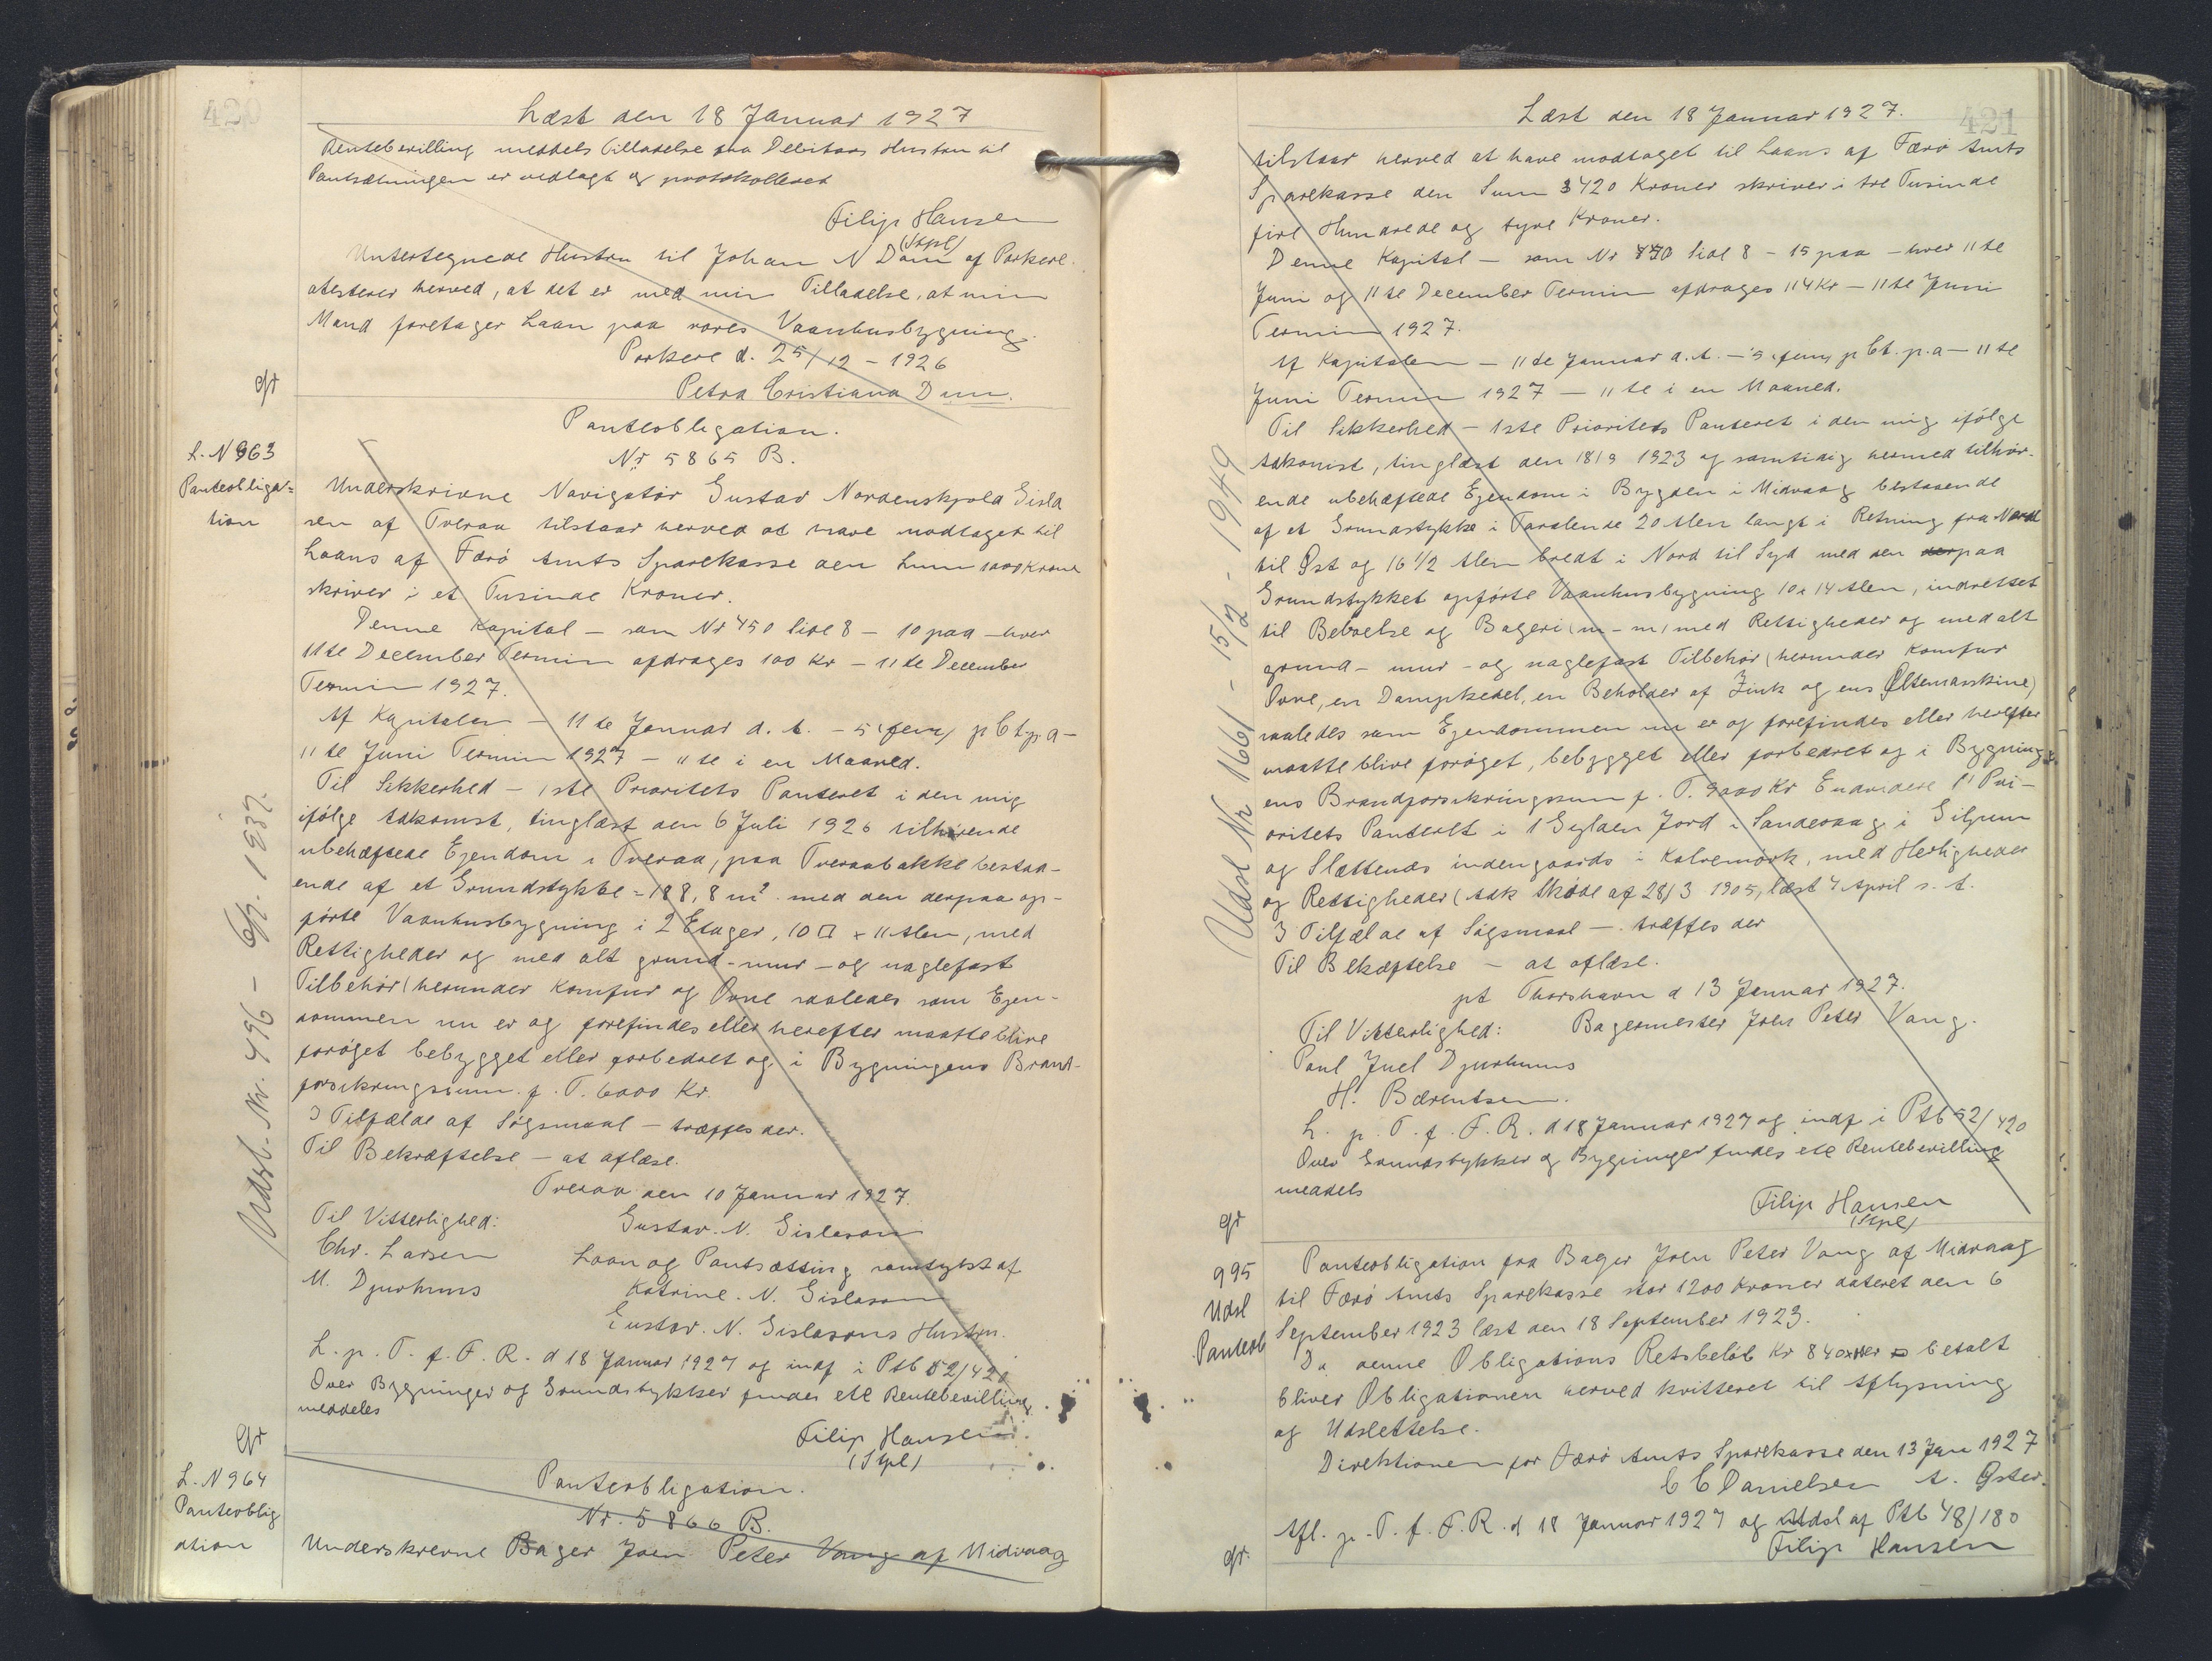 420
Læst den 18 Januar 1927
Rentebevilling meddels Tilladelse fra Debitors Hustru til
Pantsætningen er vedlagt og protokolleret
Filip Hansen
(Stpl)
Undertegnede Hustru til Johan N Dam af Porkere
atesterer herved, at det er med min Tilladelse, at min
Mand foretager Laan paa vores Vaanhusbygning.
Porkere d. 25/12 - 1926
Petra Cristiana Dam.
gr
Panteobligation.
Nr 5865 B.
L. N 963
Panteobliga=
tion
Underskrivne Navigatør Gustav Nordenskjold Gisla
sen af Tveraa tilstaar herved at have modtaget til
Laans af Færø Amts Sparekasse den Sum 1000 Kroner
skriver i et Tusinde Kroner.
Denne Kapital - som Nr 450 lite 8 - 10 paa - hver
11te December Termin afdrages 100 Kr - 11te December
Termin 1927.
Af Kapitalen - 11te Januar d. A. - 5 (fem) pCt p.a -
11te Juni Termin 1927 - 11te i en Maaned.
Til Sikkerhed - 1ste Prioritets Panteret i den mig
ifølge Adkomst, tinglæst den 6 Juli 1926 tilhørende
ubehæftede Ejendom i Tveraa, paa Tveraabakke bestaa-
ende af et Grundstykke = 188,8 m² med den derpaa op-
førte Vaanhusbygning i 2 Etager, 10 □ x 11 Alen, med
Rettigheder og med alt grund-mur - og naglefast
Tilbehør (herunder Komfur og Ovne saaledes som Ejen-
dommen nu er og forefindes eller herefter maatte blive
forøget bebygget eller forbedret og i Bygningens Brand-
forsikringssum f. T. 6000 Kr.
I Tilfælde af Søgsmaal - træffes der.
Til Bekræftelse - at aflæse.
Tveraa den 10 Januar 1927.
Til Vitterlighed: Gustav. N. Gislason
Chr. Larsen Laan og Pantsætting samtykt af
M. Djurhuus Katrine. N. Gislason
Gustav. N. Gislasons Hustru.
L. p. T. f. F. R. d 18 Januar 1927 og indf i Ptb 52/420
Over Bygninger og Grundstykker findes ell Rentebevilling
meddeles
Filip Hansen.
(Stpl)
Udsl. Nr. 496 - 6/7. 1937.
gr
L. N 964
Panteoblig
ation
Panteobligation.
Nr. 5866 B.
Underskrevne Bager Joen Peter Vang af Midvaag
421
Læst den 18 Januar 1927.
tilstaar herved at have modtaget til Laans af Færø Amts
Sparekasse den Sum 3420 Kroner skriver i tre Tusinde
fire Hundrede og tyve Kroner.
Denne Kapital - som Nr 470 lite 8 - 15 paa - hver 11te
Juni og 11te December Termin afdrages 114 Kr - 11te Juni
Termin 1927.
Af Kapitalen - 11te Januar d. A. - 5 (fem) p Ct. p.a - 11te
Juni Termin 1927 - 11te i en Maaned.
Til Sikkerhed - 1ste Prioritets Panteret i den mig ifølge
Adkomst, tinglæst den 18/9 1923 og samtidig hermed tilhør-
ende ubehæftede Ejendom i Bygden i Midvaag bestaaende
af et Grundstykke i 20 Alen langt i Retning fra Nord
til Øst og 16 1/2 Alen bredt i Nord til Syd med den derpaa
Grundstykket opførte Vaanhusbygning 10 x 14 Alen, indrettet
til Beboelse og Bageri (m - m) med Rettigheder og med alt
grund - mur - og naglefast Tilbehør (herunder Komfur
Ovne, en Dampkedel, en Beholder af Zink og ens Æltemasskine)
saaledes som Ejendommen nu er og forefindes eller herefter
maatte blive forøget, bebygget eller forbedret og i Bygning
ens Brandforsikringssum f. T. 9000 Kr Endvidere 1' Pri-
oritets Panteret i 1 Gylden Jord i Sandevaag i Giljum
og Slættenæs indengaards i Kalvemørk, med Herligheder
og Rettigheder (Adk Skøde af 28/3 1905, læst 4 April s. A.
I Tilfælde af Søgsmaal - træffes der
Til Bekæftelse - at aflæse.
pt Thorshavn d 13 Januar 1927.
Til Vitterlighed: Bagermester Joen Peter Vang.
Poul Juel Djurhuus
H. Bærentsen.
L. p. T. f. F. R. d 18 Januar 1927 og indf i Ptb 52/420
Over Grundstykker og Bygninger findes ell Rentebevilling
meddels
Filip Hansen
(Stpl)
Udsl Nr 1661 - 15/2 - 1949
gr
995
Udsl
Panteob
Panteobligation fra Bager Joen Peter Vang af Midvaag
til Færø Amts Sparekasse stor 1200 Kroner dateret den 6
September 1923 læst den 18 September 1923.
Da denne Obligations Retsbeløb Kr 840 er betalt
bliver Obligationen herved kvitteret til Aflysning
og Udslettelse.
Direktionen for Færø Amts Sparekasse den 13 Jan 1927
C C Danielsen A. Øster.
Afl. p. T. f. F. R. d 18 Januar 1927 og Udsl af Ptb 48/180
Filip Hansen
gr.